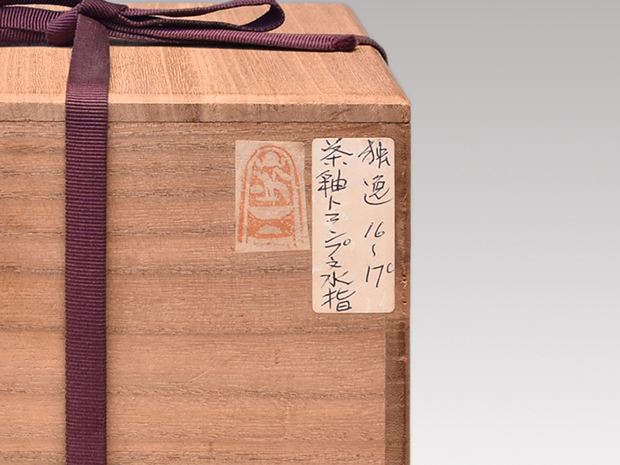 独逸 16〜17C
茶釉トランプ之水指